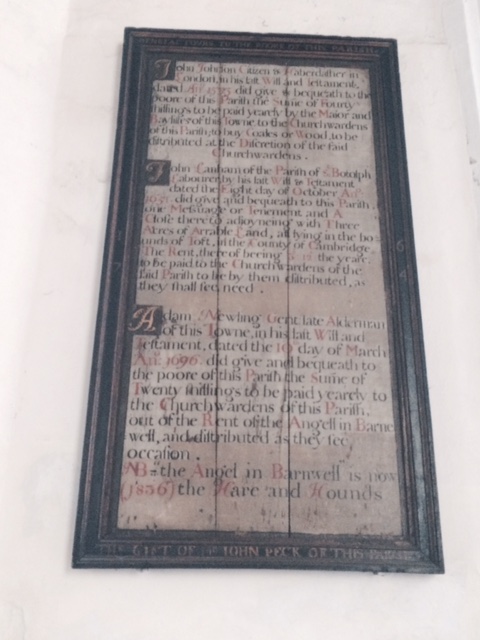 SEVERAL GIFTS TO THE POORE OF THIS PARISH
John Johnson Citizen & Haberdasher in
London, in his last Will and Testament,
dated did give & bequeath to the
poore of this Parish the Sume of Fourty
shillings to be paid yearly by the Maior and
Bayliffes of this Towne to the Churchwardens
of this Parish, to buy Coales or Wood, to be
distributed at the Discretion of the said
Churchwardens.
John Lanham of the Parish of St Botolph
Labourer by his last Will & Testament
dated the Eight day of October
did give and bequeath to this Parish,
one Messuage or Tenement and A
Close thereto adjoyneing with Three
Acres of Arrable Land, all lying in the bo
unds of Toft, in the County of Cambridge.
The Rent, thereof beeing the yeare
to be paid to the Churchwardens of the
said Parish to be by them distributed, as
they shall see need.
Adam Newling Gent: late Alderman
of this Towne, in his last Will and
Testament, dated the 10 day of March
1696 did give and bequeath to
the poore of this Parish the Sume of
Twenty shillings to be paid yearely to
the Churchwardens of this Parish,
out of the Rent of the Angell in Barne
well, and distributed as they see
occasion.
NB "the Angel in Barnwell" is now
(1836) the Hare and Hounds
THE GIFT OF JOHN PECK OF THIS PARISH